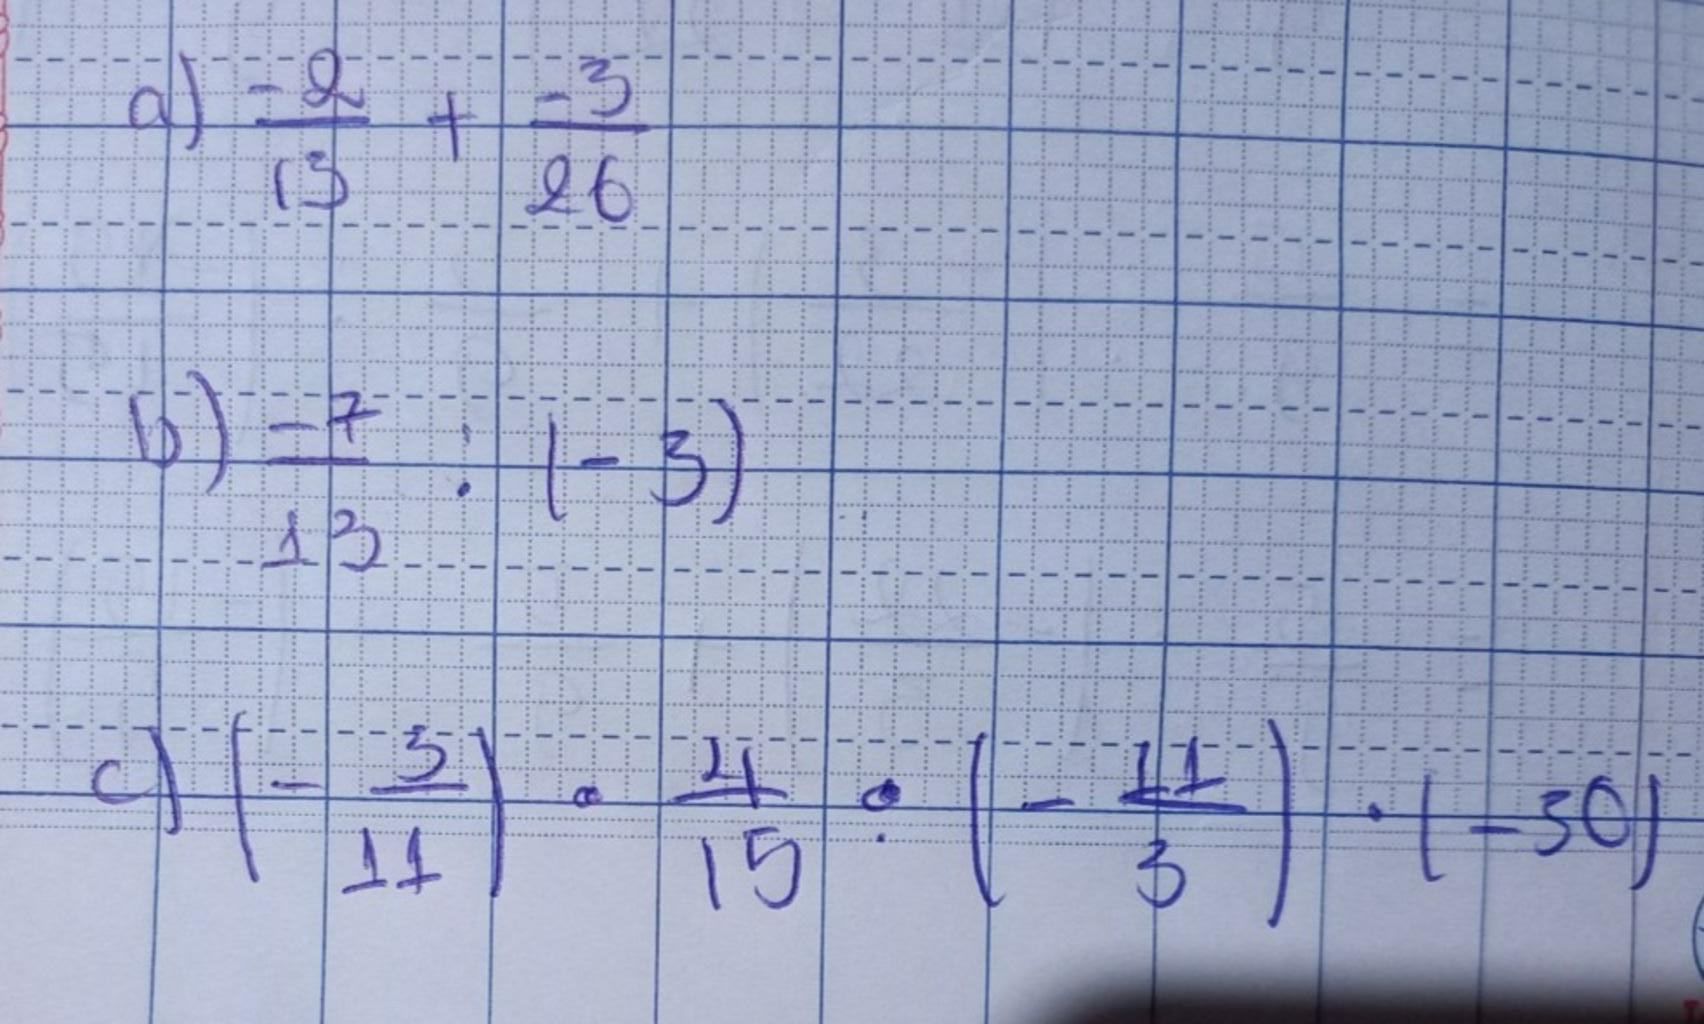 a) -2/13 + -3/26
b) -7/13 : (-3)
c) (- 3/11) . 4/15 : (- 11/3) . (-50)